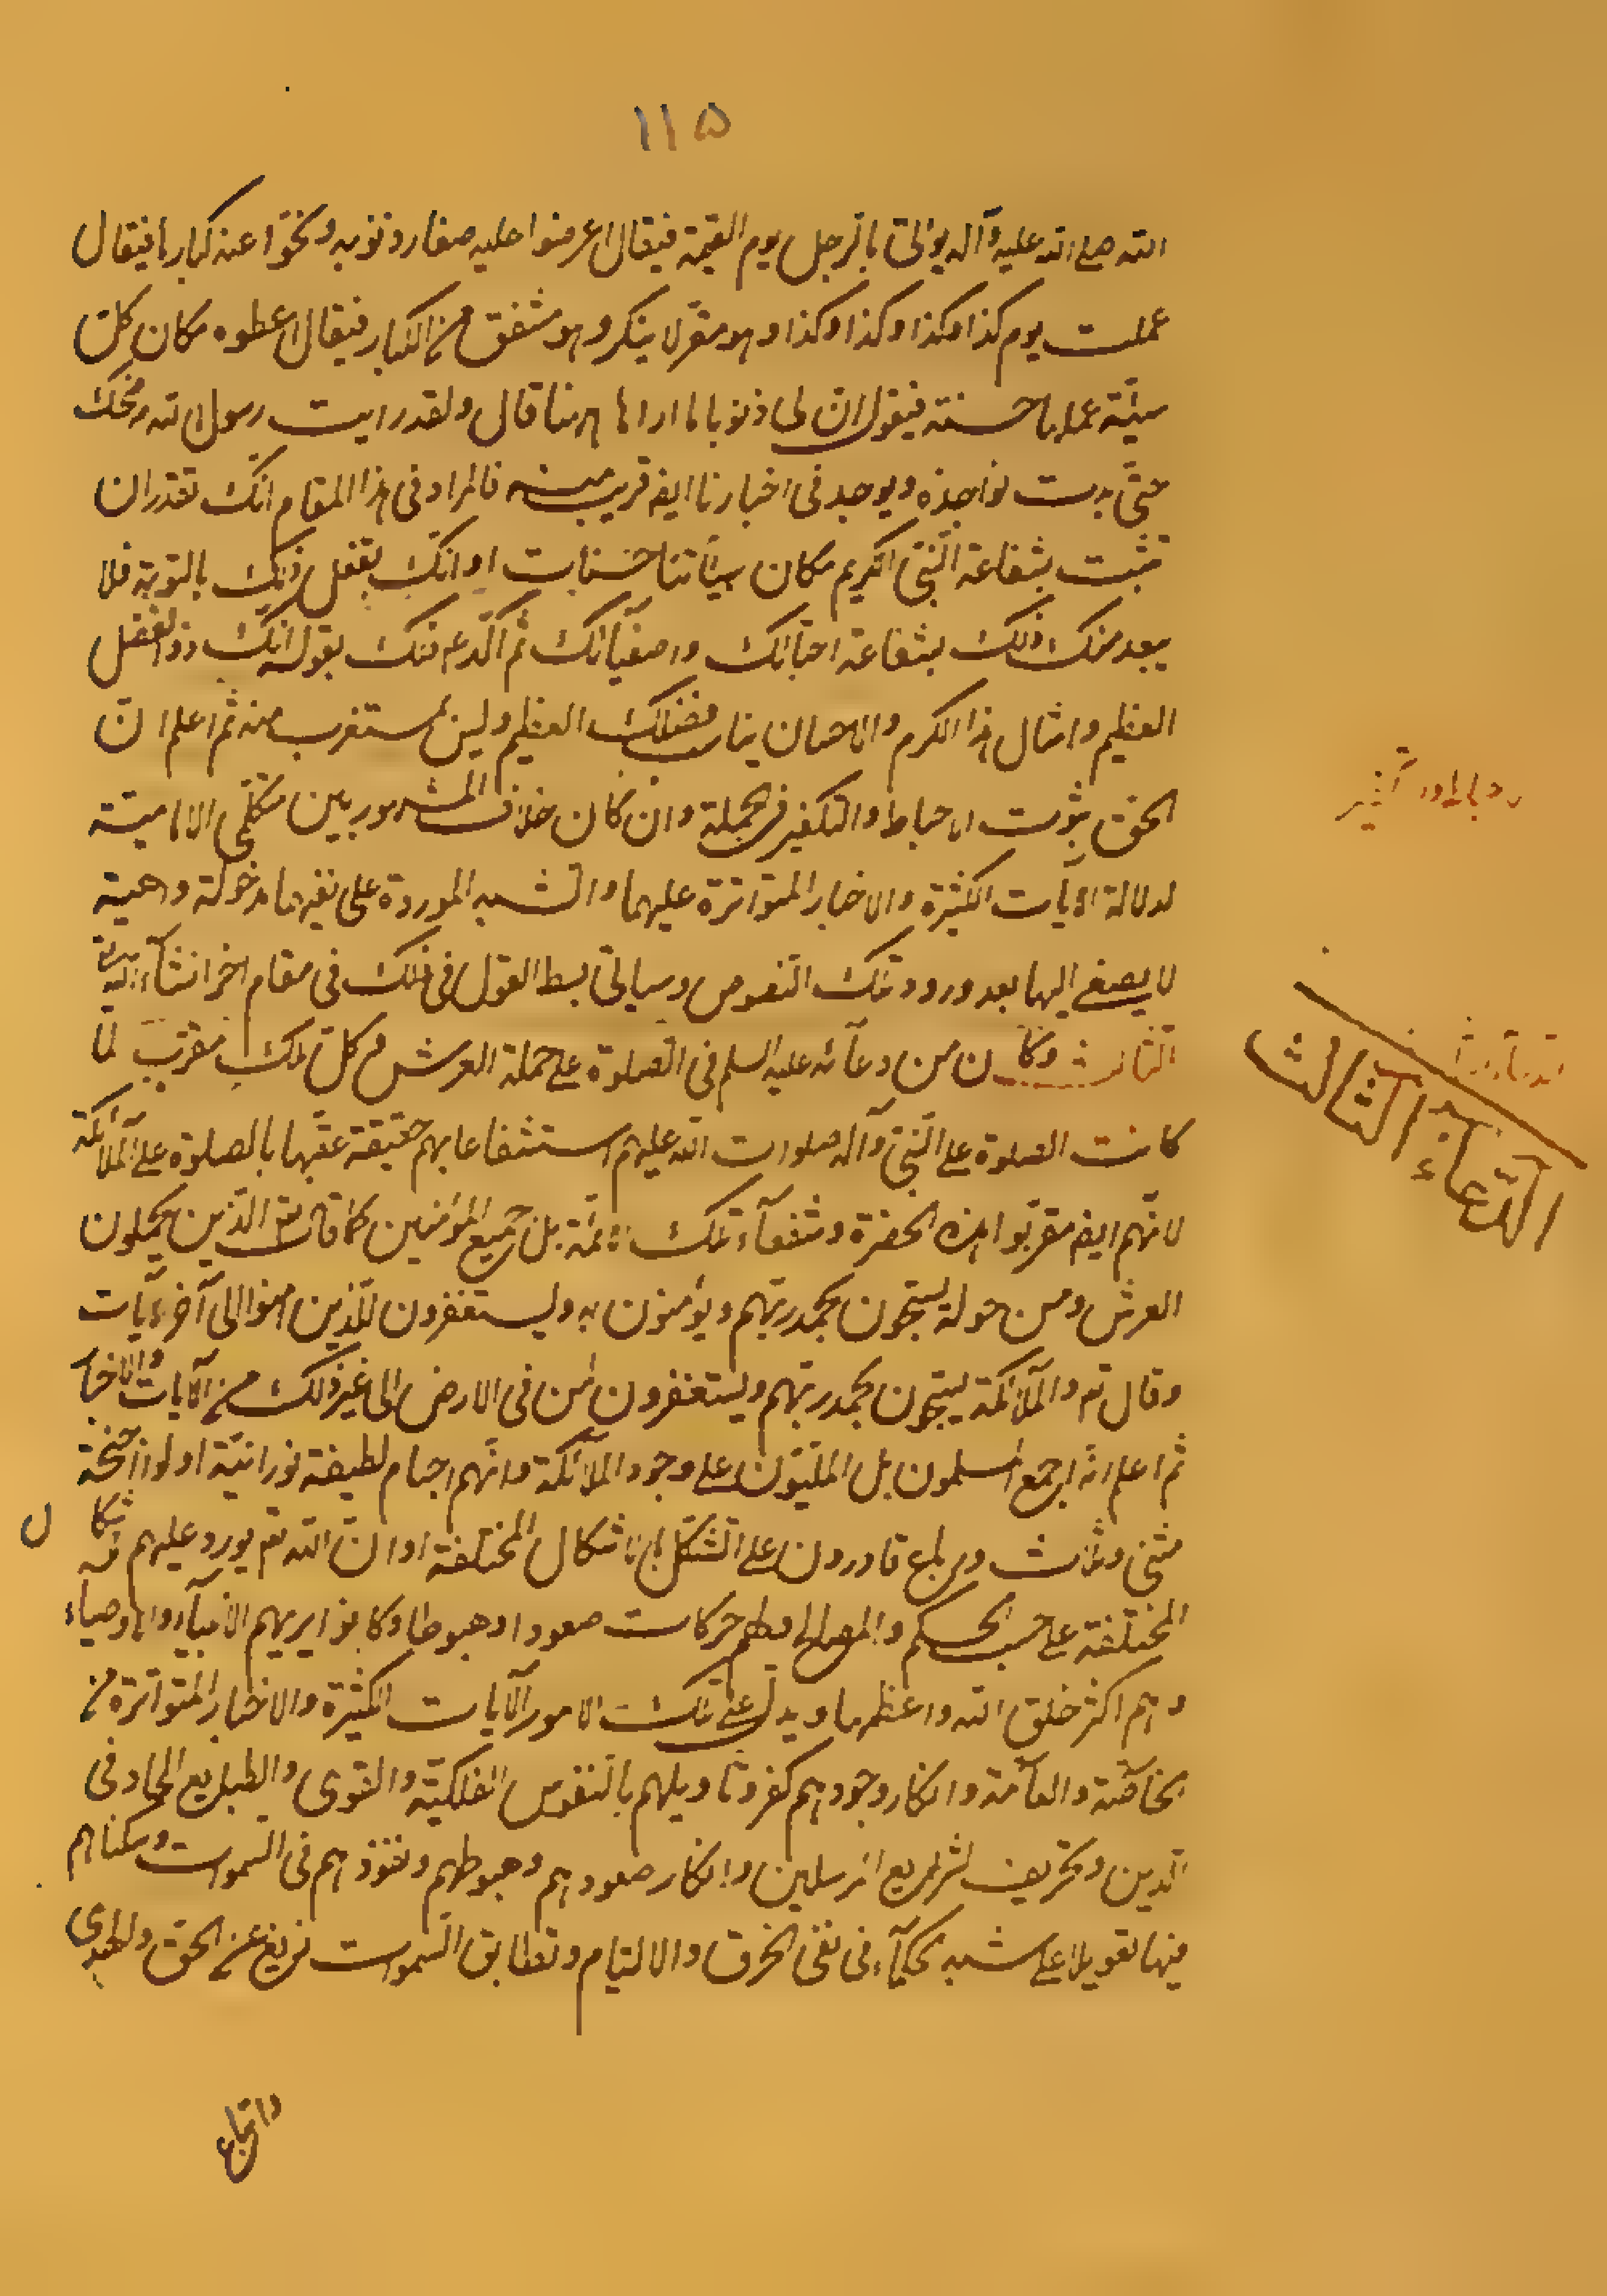 ١١۵
الله صلى الله عليه وآله يؤتى بالرجل يوم القيمة فيقال اعرضوا عليه صغار ذنوبه ونحّوا عنه كبارها فيقال
عملت يوم كذا وكذا وكذا وكذا وهو مقرّ لا ينكر وهو مشفق من الكبار فيقال اعطوه مكان كلّ
سيئة عملها حسنة فيقول ان لى ذنوبا ما اراها ههنا قال ولقد رايت رسول الله ضحك
حتّى بدت نواجذه ويوجد فى اخبارنا ايضا قريب منه فالمراد فى هذا المقام انّك تقدر ان
تثبت بشفاعة النّبى الكريم مكان سيّئاتنا حسنات او انّك تفعل ذلك بالتوبة فلا
يبعد منك ذلك بشفاعة احبّائك واصفيآئك ثم اكّد عم ذلك بقوله انّك ذو الفضل
العظيم وامثال هذا الكرم والاحسان يناسب فضلك العظيم وليس بمستغرب منه ثم اعلم انّ
الحق ثبوت الاحباط والتكفير فى الجملة وان كان خلاف المشهور بين متكلّمى الاماميّة
لدلالة الآيات الكثيرة والاخبار المتواترة عليهما والشبه الموردة على نفيهما مدخولة واهية
لا يصغى اليها بعد ورود تلك النصوص وسياتى بسط القول فى ذلك فى مقام اخر انشآء الله
الثالث وكان من دعآئه عليه السلم فى الصلوة على حملة العرش وكلّ ملك مقرّب لمّا
كانت الصلوة على النّبىّ وآله صلوات الله عليهم استشفاعا بهم حقيقة عقّبها بالصلوة على الملآئكة
لانّهم ايضا مقرّبوا هذه الحضرة وشفعآء تلك الامّة بل جميع المؤمنين كما قال تع الّذين يحملون
العرش ومن حوله يسبّحون بحمد ربّهم ويؤمنون به ويستغفرون للّذين امنوا الى آخر الآيات
وقال تع والملآئكة يسبّحون بحمد ربّهم ويستغفرون لمن فى الارض الى غير ذلك من الآيات والاخبار
ثم اعلم انّه اجمع المسلمون بل الملّيّون على وجود الملآئكة وانّهم اجسام لطيفة نورانيّة اولوا اجنحة
مثنى وثلاث ورباع قادرون على التشكّل بالاشكال المختلفة او انّ الله تع يورد عليهم الاشكال
المختلفة على حسب الحكم والمصالح ولهم حركات صعودا وهبوطا وكانوا يريهم الانبيآء والاوصياء
وهم اكثر خلق الله واعظمها ويدلّ على تلك الامور الآيات الكثيرة والاخبار المتواترة من
الخاصّة والعامّة وانكار وجودهم كفر وتاويلهم بالنفوس الفلكيّة والقوى والطبايع الحاد فى
الدين وتخريف لشرايع المرسلين وانكار صعودهم وهبوطهم ونفوذهم فى السّموات وسكناهم
فيها تعويلا على شبه الحكمآء فى نفى الخرق والالتيام وتطابق السّموات زيغ عن الحق والهدى
واتباع
الدّعاء الثالث